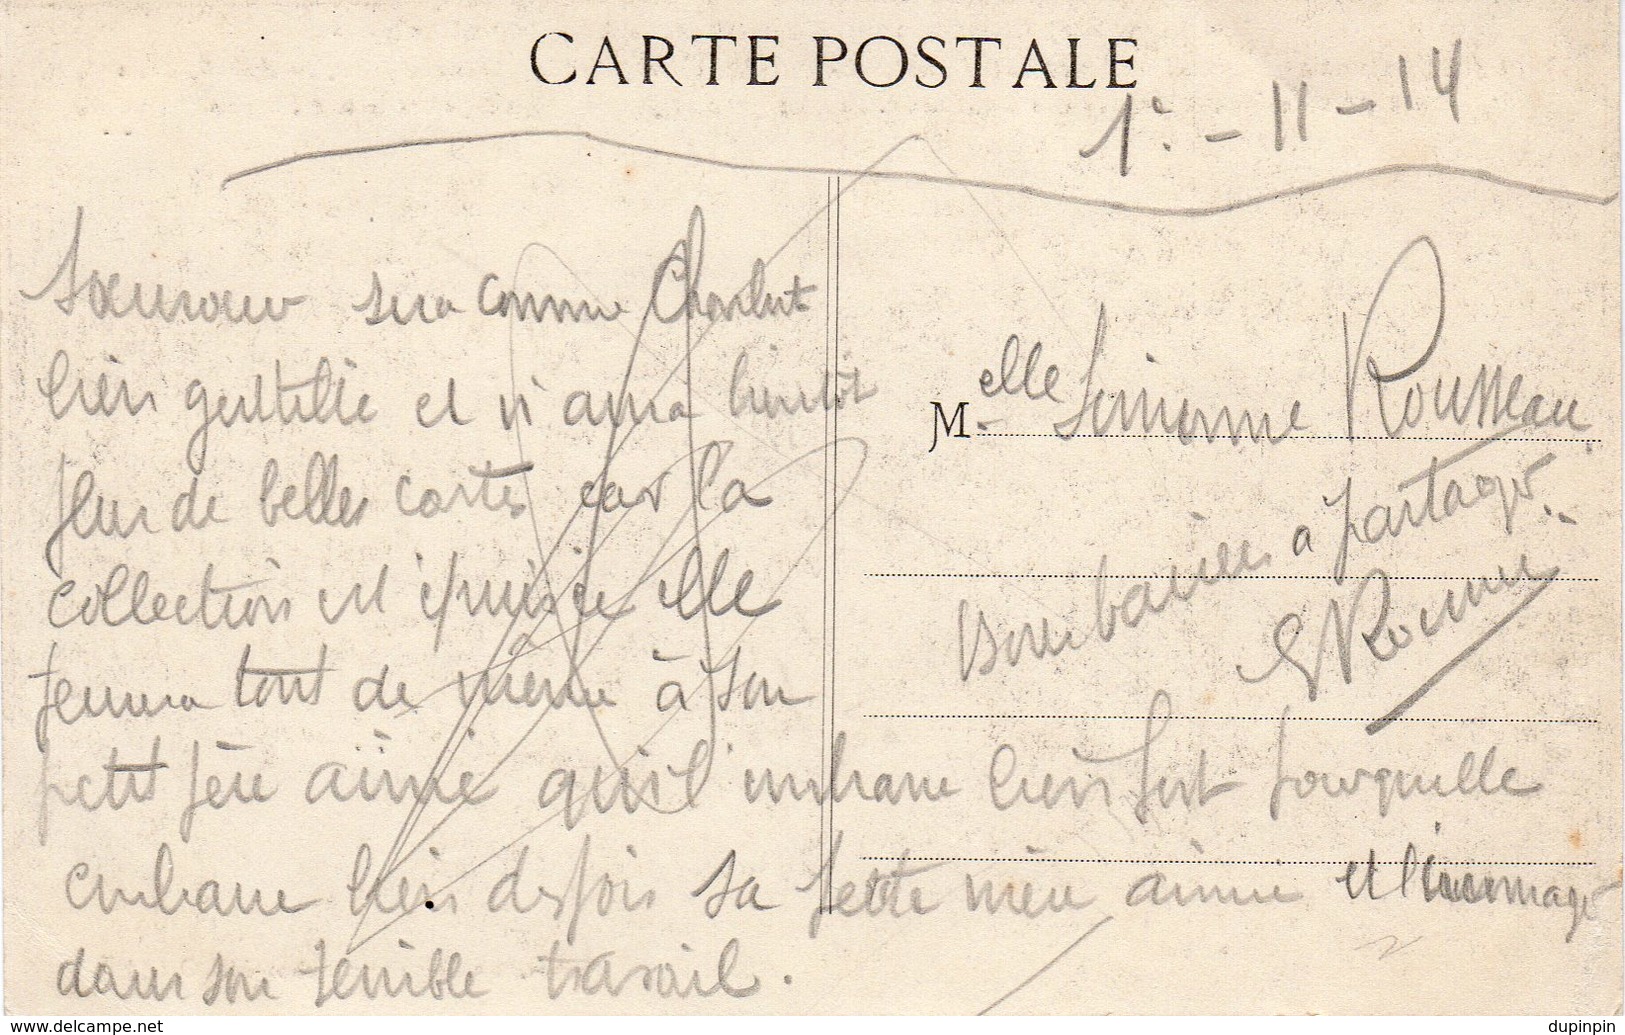 CARTE POSTALE
1° - 11 - 14
sera comme
bien gentille et n'aura bientôt
plus de belles cartes car la
collection est épuisée elle
pensera tout de même à son
petit père aimé qui l'embrasse bien fort pourquelle
embrasse bien des fois sa petite mère aimée et l'encourage
dans son terrible travail.
Melle Simonne Rousseau
Bons baisers a partager..